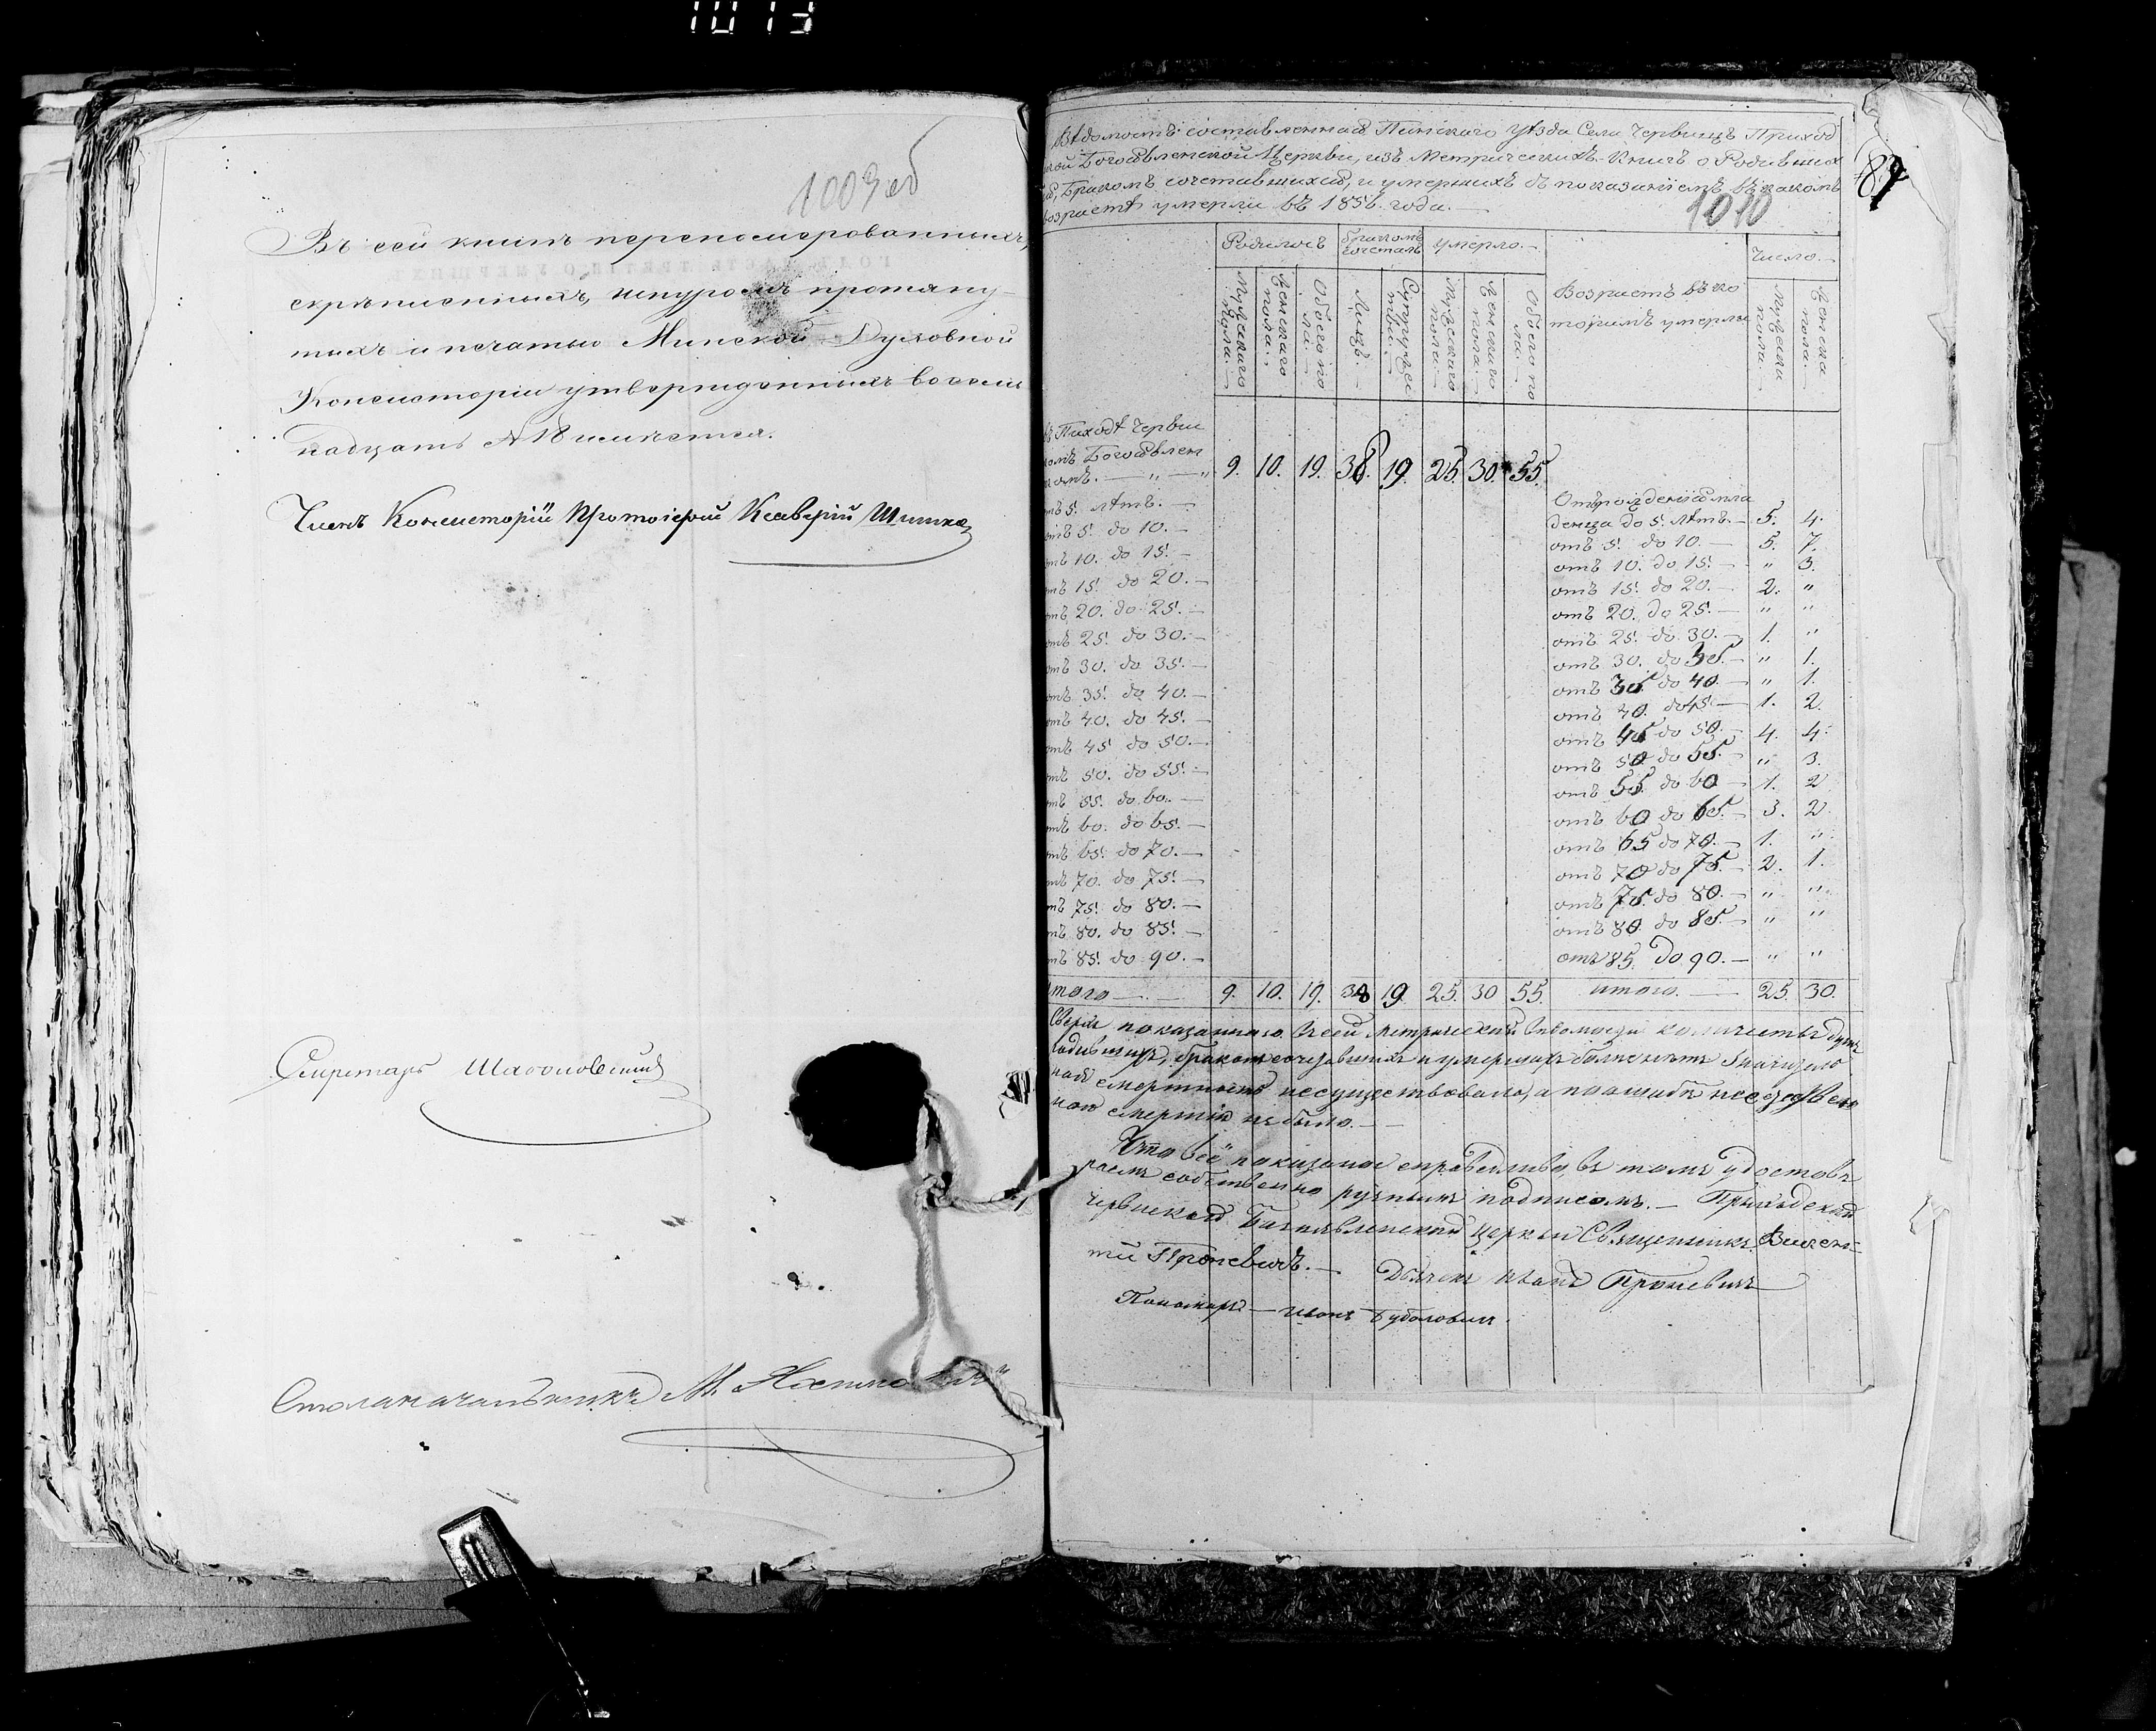 1013
1003 об
Въ сей книгѣ перенумерованныхъ,
скрѣпленныхъ, шнуромъ протяну-
тыхъ и печатью Минской Духовной
Консисторіи утвержденныхъ восем
надцать № 18 листовъ.
Членъ Консисторіи Протоіерей Ксаверій
Секретарь
Столоначальникъ М.
Вѣдомость составленная Пинскаго уѣзда Села Червищъ Приход
ской Богоявленской Церкви, изъ Метрическихъ Книгъ о Родивших
ся, Бракомъ сочетавшихся, и умершихъ съ показаніемъ въ какомъ
возрастѣ умерли въ 1856. года. —
87
1010
Родилось Бракомъ сочеталъ умерло. — Число. —
Мужескаго пола. — Женскаго пола. — Обоего по ла. — Лицъ. — Супружес тви. — Мужескаго пола. — Женскаго пола. — Обоего по ла. — Возрастъ въ ко торимъ умерли Мужеска пола. — Женска пола. —
въ Пиходѣ Черви
комъ Богоявлен
комъ. — „ — „ 9. 10. 19. 38. 19. 25. 30. 55.
Отъ рожденія мла
тъ 5. лѣтъ. — денца до 5. лѣтъ. — 5. 4.
отъ 5. до 10. — отъ 5. до 10. — 5. 7.
отъ 10. до 15. — отъ 10. до 15. — „ 3.
отъ 15. до 20. — отъ 15. до 20. — 2. „
отъ 20. до 25. — отъ 20. до 25. — „ „
отъ 25. до 30. — отъ 25. до 30. — 1. „
отъ 30. до 35. — отъ 30. до 35. — „ 1.
отъ 35. до 40. — отъ 35. до 40. — „ 1.
отъ 40. до 45. — отъ 40. до 45. — 1. 2.
отъ 45 до 50. — отъ 45 до 50. — 4. 4.
отъ 50. до 55. — отъ 50 до 55. — „ 3.
отъ 55. до 60. — отъ 55. до 60 — 1. 2
отъ 60. до 65. — отъ 60 до 65. — 3. 2
отъ 65. до 70. — отъ 65 до 70. — 1. „
отъ 70. до 75. — отъ 70 до 75. — 2. 1.
отъ 75. до 80. — отъ 75. до 80. — „ „
отъ 80. до 85. — отъ 80. до 85. — „ „
отъ 85. до 90. — отъ 85. до 90. — „ „
итого — 9. 10. 19. 38 19. 25. 30 55. итого. — 25. 30.
Сверхъ показаннаго въ сей метрической количества душъ
родившихъ, бракомъ сочетавшихъ и умершихъ
смертность несуществовала, а по
смертію небыло. —
Что всё показаное справедливо, въ томъ удостовѣ
ряемъ собственно ручнымъ подписомъ. — Приходской
Червиской Богоявленской Церкви Священникъ Викен-
тій Проневичъ. — Дьячекъ Иванъ Проневичъ
Пономарь — Иванъ